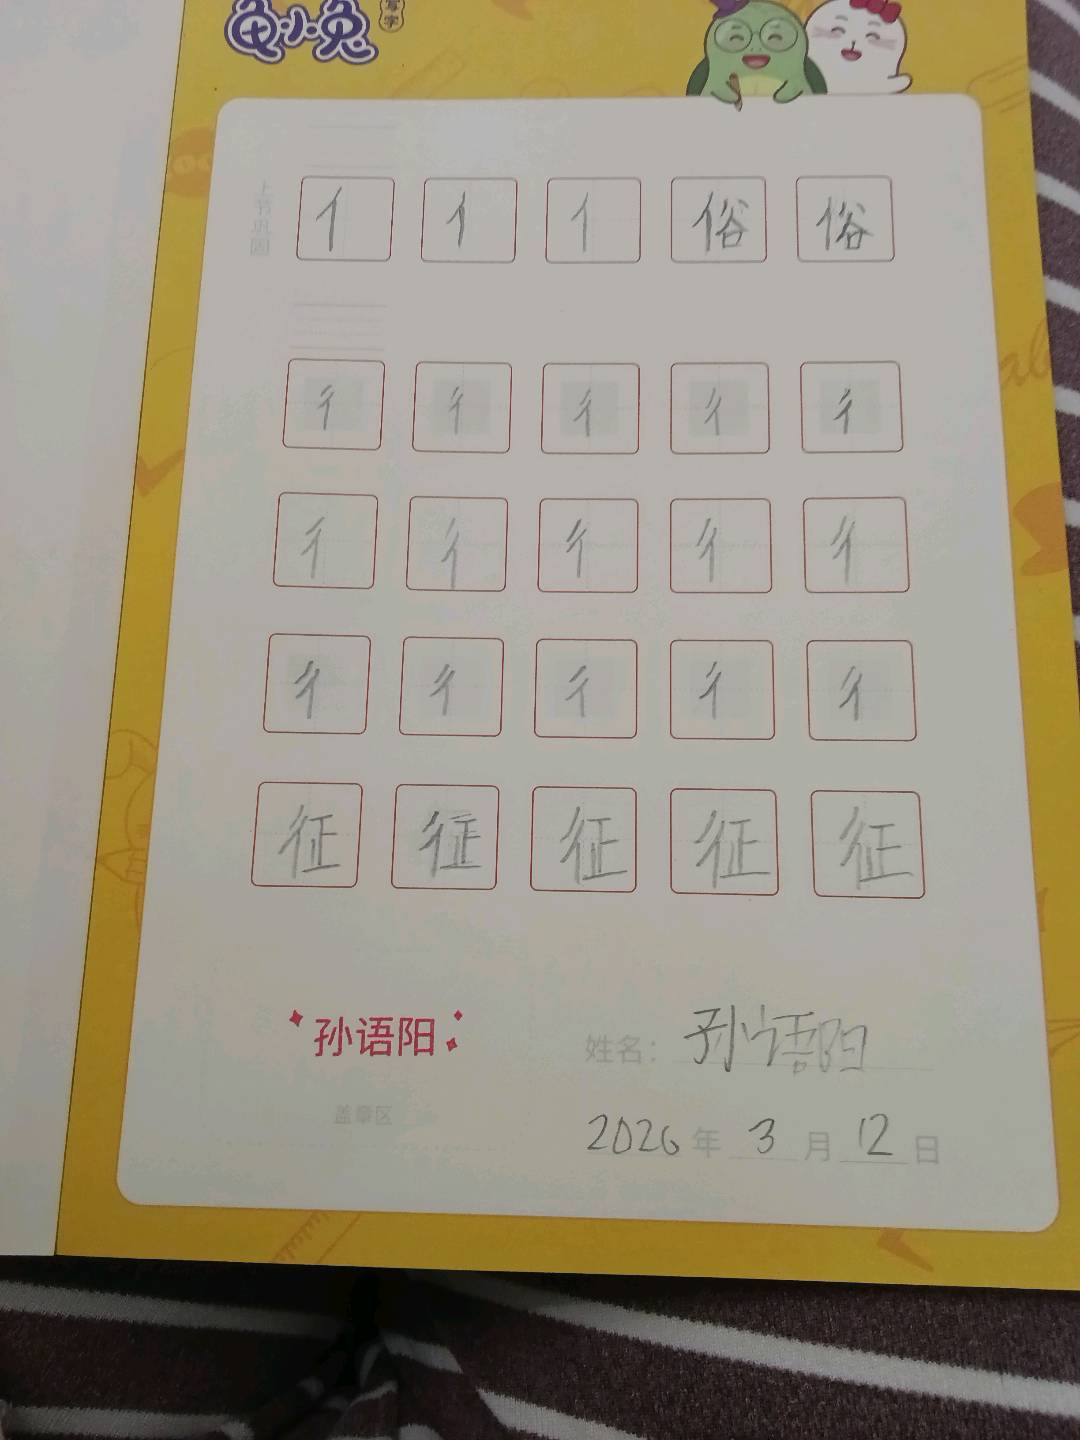 龟小兔
写字
上节巩固
亻 亻 亻 俗 俗
彳 彳 彳 彳 彳
彳 彳 彳 彳 彳
彳 彳 彳 彳 彳
征 征 征 征 征
孙语阳
姓名：孙语阳
盖章区
2026年3月12日